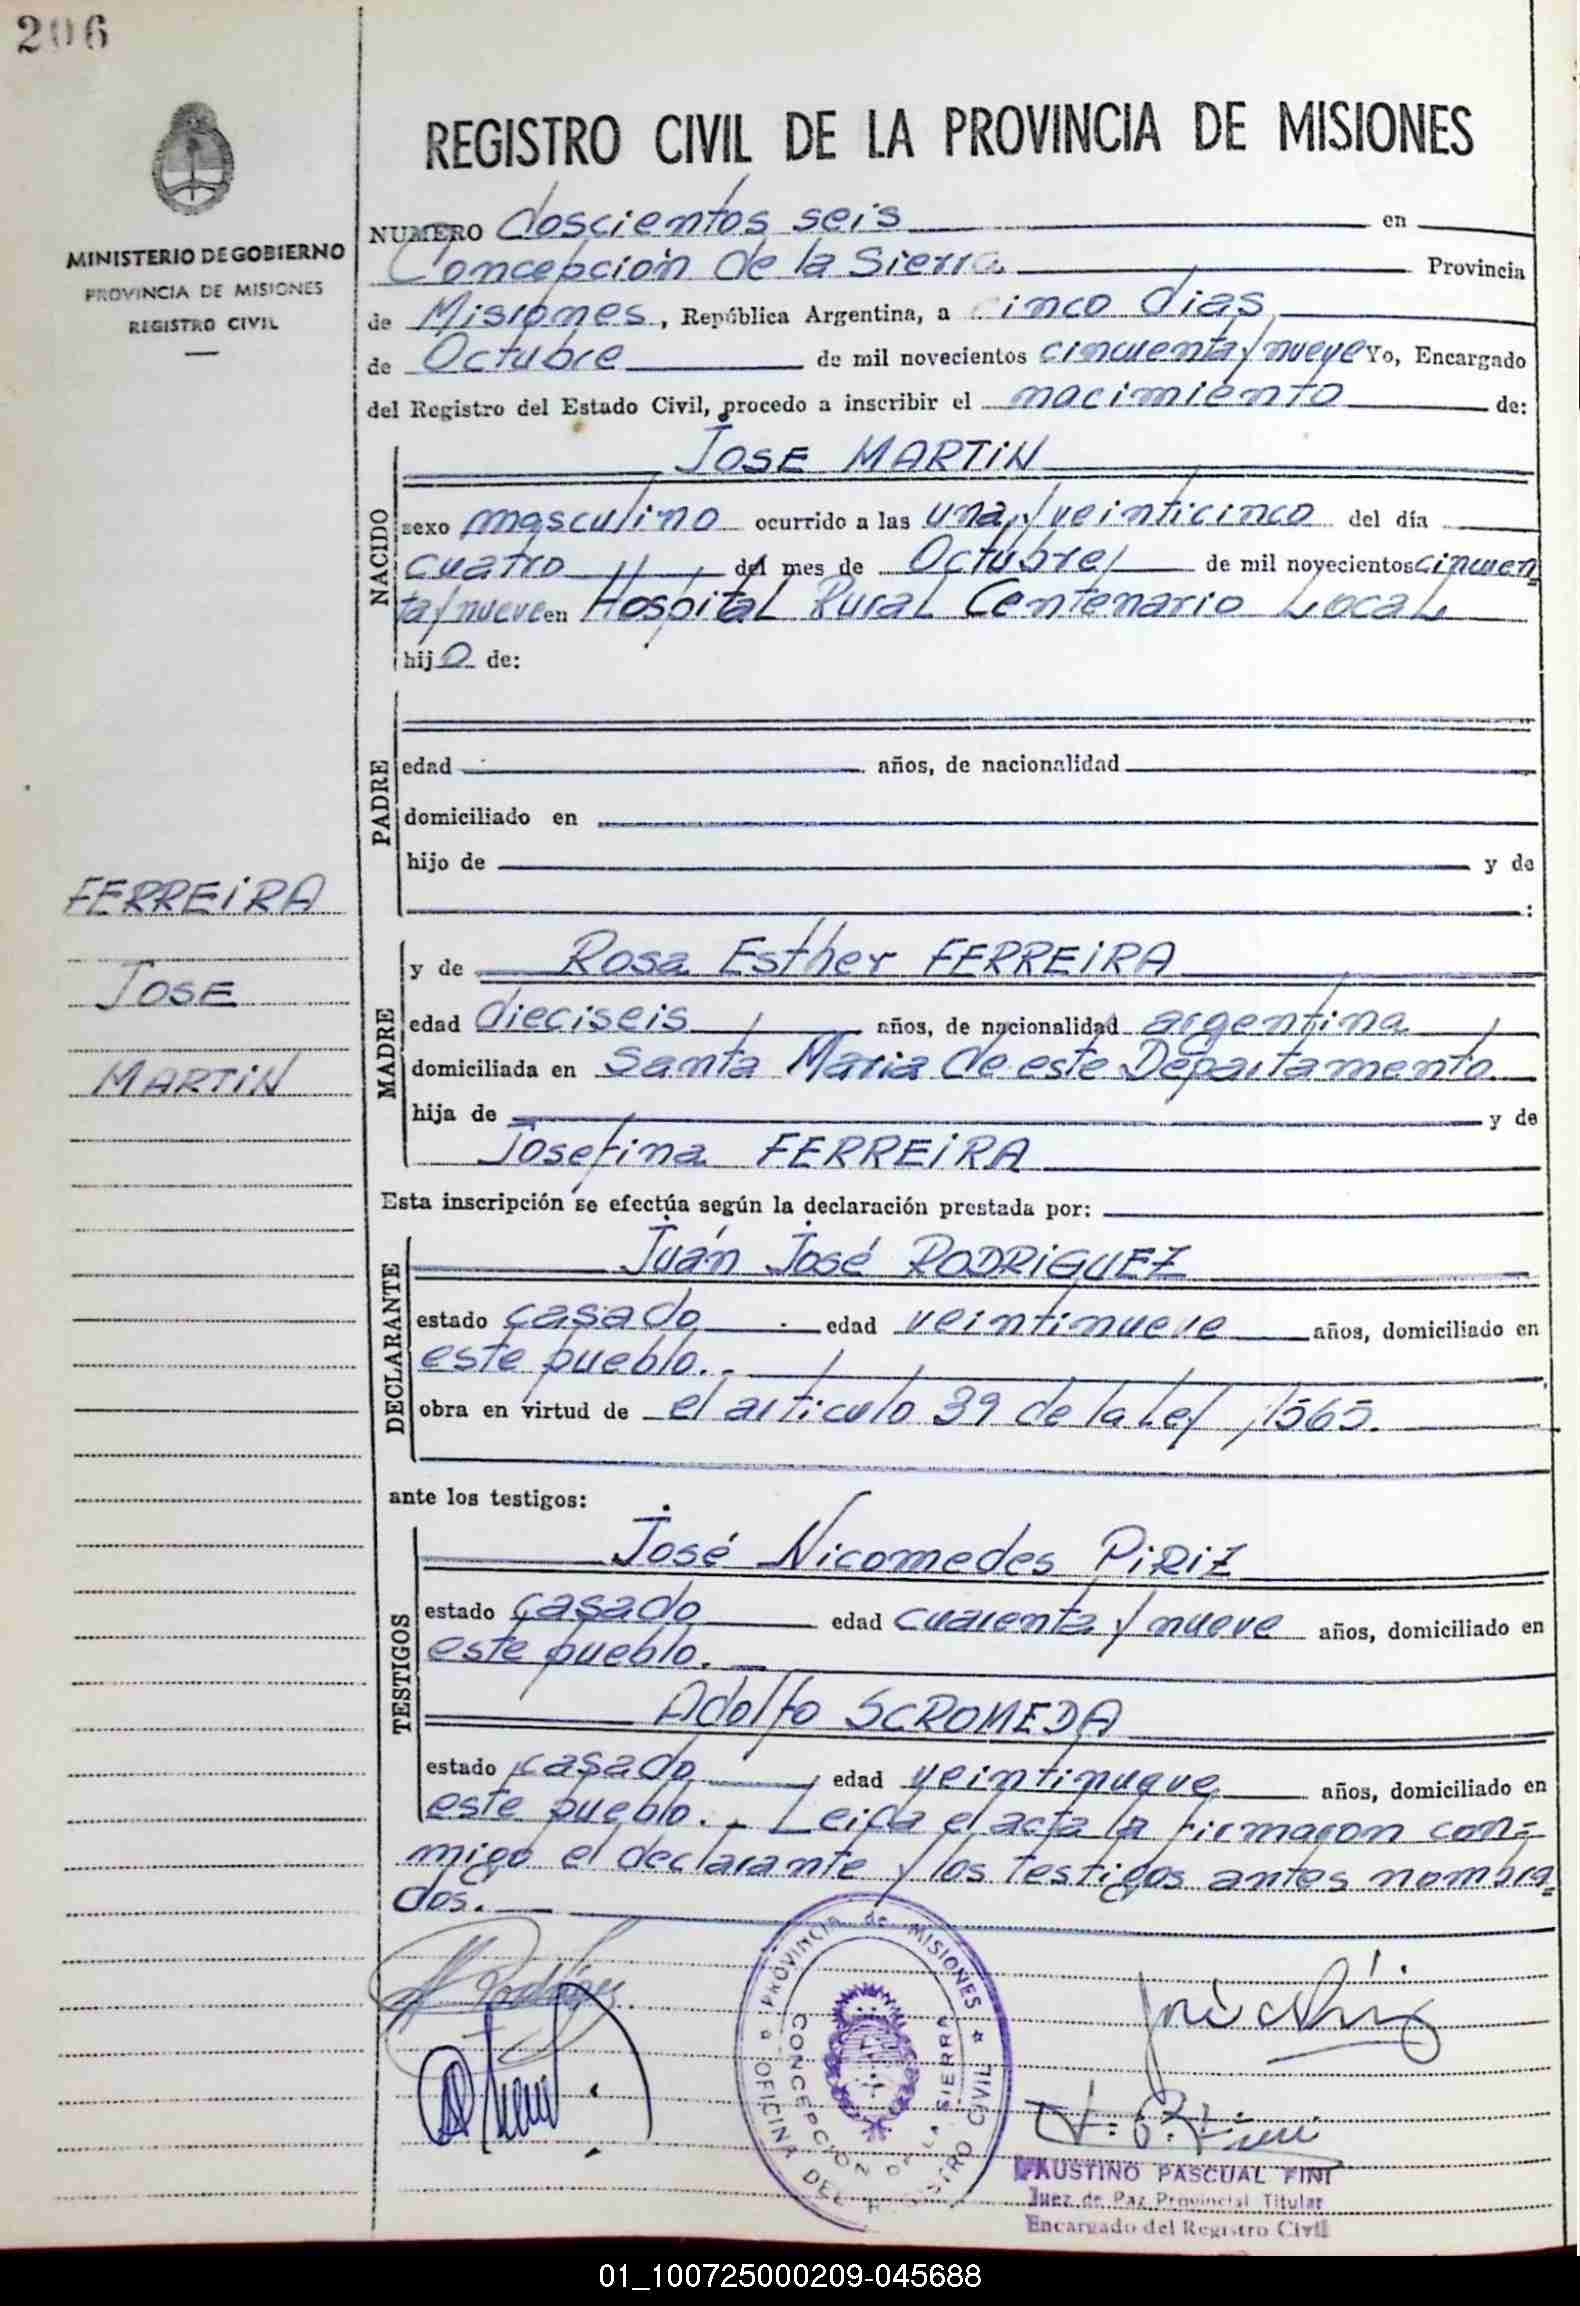 206
MINISTERIO DE GOBIERNO
PROVINCIA DE MISIONES
REGISTRO CIVIL
REGISTRO CIVIL DE LA PROVINCIA DE MISIONES
NUMERO doscientos seis en
Concepción de la Sierra Provincia
de Misiones, República Argentina, a cinco dias
de Octubre de mil novecientos cincuenta y nueve Yo, Encargado
del Registro del Estado Civil, procedo a inscribir el nacimiento de:
JOSE MARTIN
NACIDO
sexo masculino ocurrido a las una y veinticinco del día
cuatro del mes de Octubre de mil novecientos cincuen
ta y nueve en Hospital Rural Centenario Local
hijo de:
PADRE
edad años, de nacionalidad
domiciliado en
hijo de y de
:
FERREIRA
JOSE
MARTIN
MADRE
y de Rosa Esther FERREIRA
edad dieciseis años, de nacionalidad argentina
domiciliada en Santa Maria de este Departamento
hija de y de
Josefina FERREIRA
Esta inscripción se efectúa según la declaración prestada por:
DECLARANTE
Juán José RODRIGUEZ
estado casado edad veintinueve años, domiciliado en
este pueblo.
obra en virtud de el articulo 39 de la Ley 1565.
ante los testigos:
TESTIGOS
José Nicomedes PIRIZ
estado casado edad cuarenta y nueve años, domiciliado en
este pueblo.
Adolfo SCROMEDA
estado casado edad veintinueve años, domiciliado en
este pueblo. Leida el acta la firmaron con=
migo el declarante y los testigos antes nombra=
dos.
PROVINCIA de MISIONES
OFICINA DEL REGISTRO CIVIL
CONCEPCION DE LA SIERRA
FAUSTINO PASCUAL FINI
Juez de Paz Provincial Titular
Encargado del Registro Civil
01_100725000209-045688